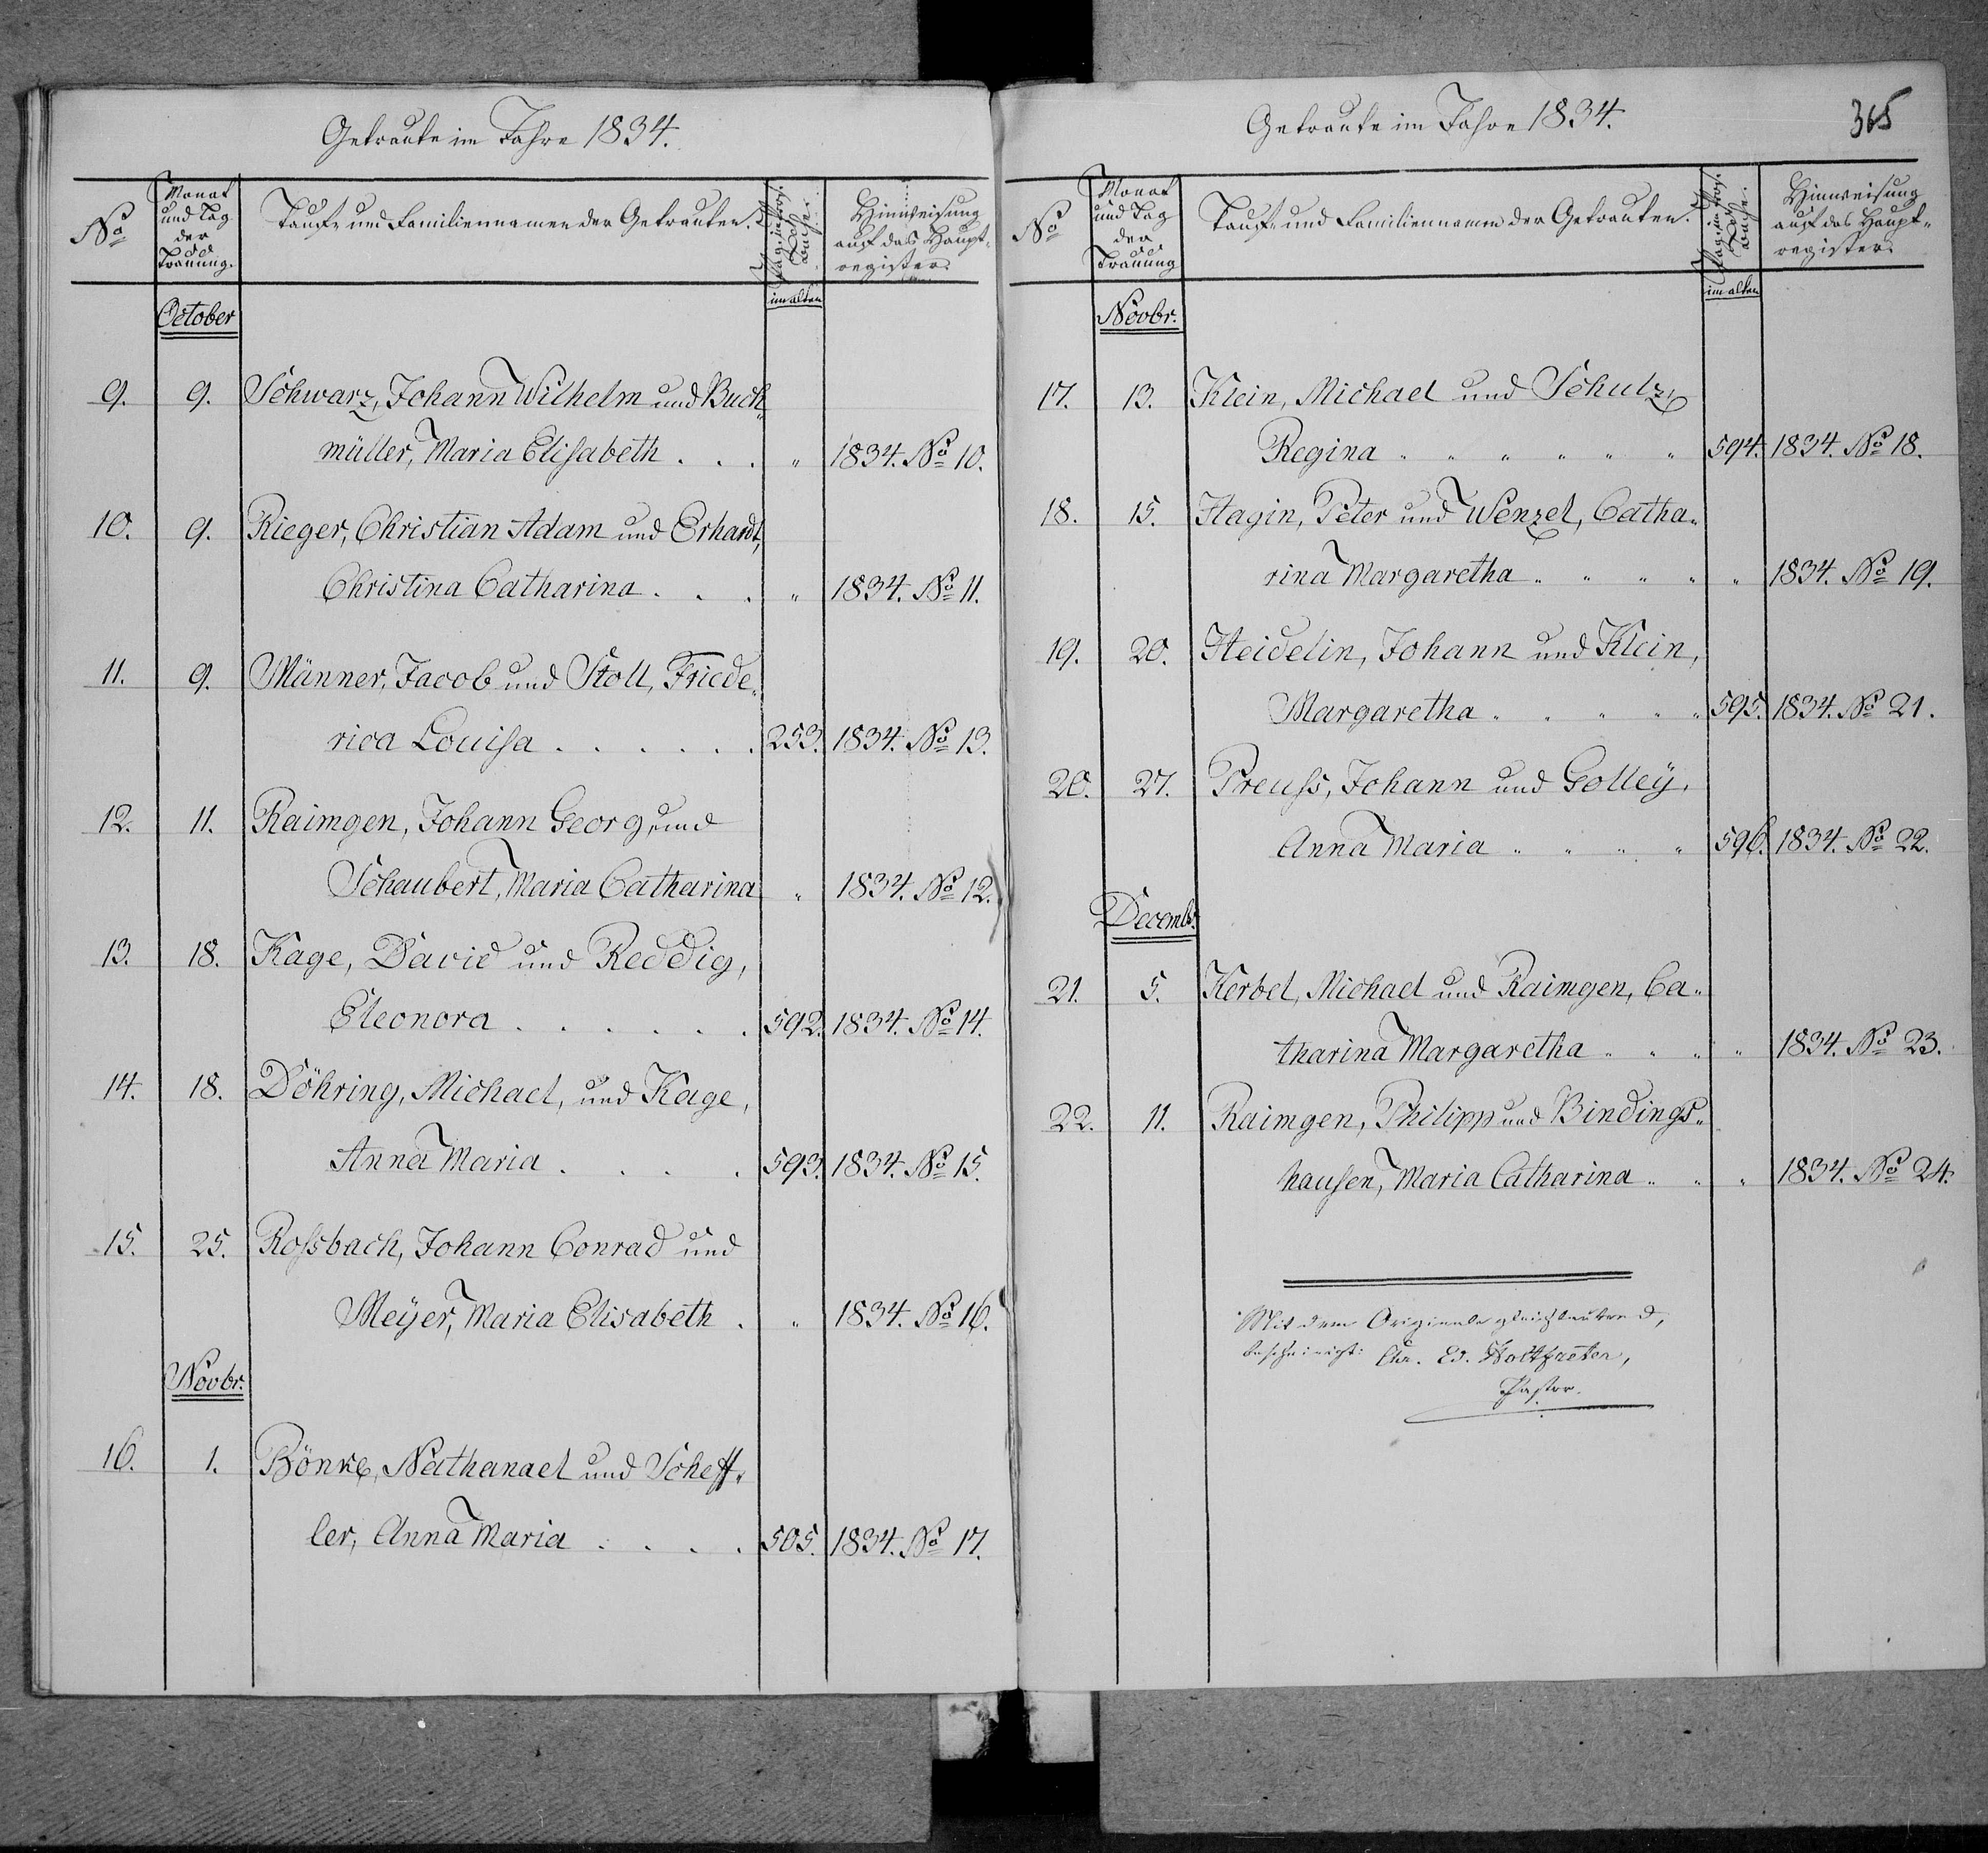 Getraute im Jahre 1834.
No Monat und Tag der Trauung. Tauf- und Familiennamen der Getrauten. Hinweisung auf das Haupt-register.
im alten
October
9. 9. Schwarz, Johann Wilhelm und Buch-
müller, Maria Elisabeth . . . " 1834. No 10.
10. 9. Rieger, Christian Adam und Erhardt,
Christina Catharina . . . " 1834. No 11.
11. 9. Männer, Jacob und Stoll, Friede-
rica Louisa . . . . . . 253. 1834. No 13.
12. 11. Raimgen, Johann Georg, und
Schaubert, Maria Catharina " 1834. No 12.
13. 18. Kage, David und Reddig,
Eleonora . . . . . . 592. 1834. No 14.
14. 18. Döhring, Michael, und Kage,
Anna Maria . . . . 593. 1834. No 15.
15. 25. Rossbach, Johann Conrad und
Meÿer, Maria Elisabeth . " 1834. No 16.
Novbr.
16. 1. Bönke, Nathanael und Scheff-
ler, Anna Maria . . . . 505. 1834. No 17.
Getraute im Jahre 1834.
365
No Monat und Tag der Trauung Tauf- und Familiennamen der Getrauten. Hinweisung auf das Haupt-register.
im alten
Novbr.
17. 13. Klein, Michael und Schulz,
Regina " " " " " " 594. 1834. No 18.
18. 15. Hagin, Peter und Wenzel, Catha-
rina Margaretha " " " " " 1834. No 19.
19. 20. Heidelin, Johann und Klein,
Margaretha " " " " " 595. 1834. No 21.
20. 27. Preuss, Johann und Golleÿ,
Anna Maria " " " " 596. 1834. No 22.
Decembr.
21. 5. Kerbel, Michael und Raimgen, Ca-
tharina Margaretha " " " " 1834. No 23.
22. 11. Raimgen, Philipp und Bindings-
hausen, Maria Catharina " " " 1834. No 24.
Mit dem Originale gleichlautend,
bescheinigt: Chr. Ed. Holtfreter,
Pastor.